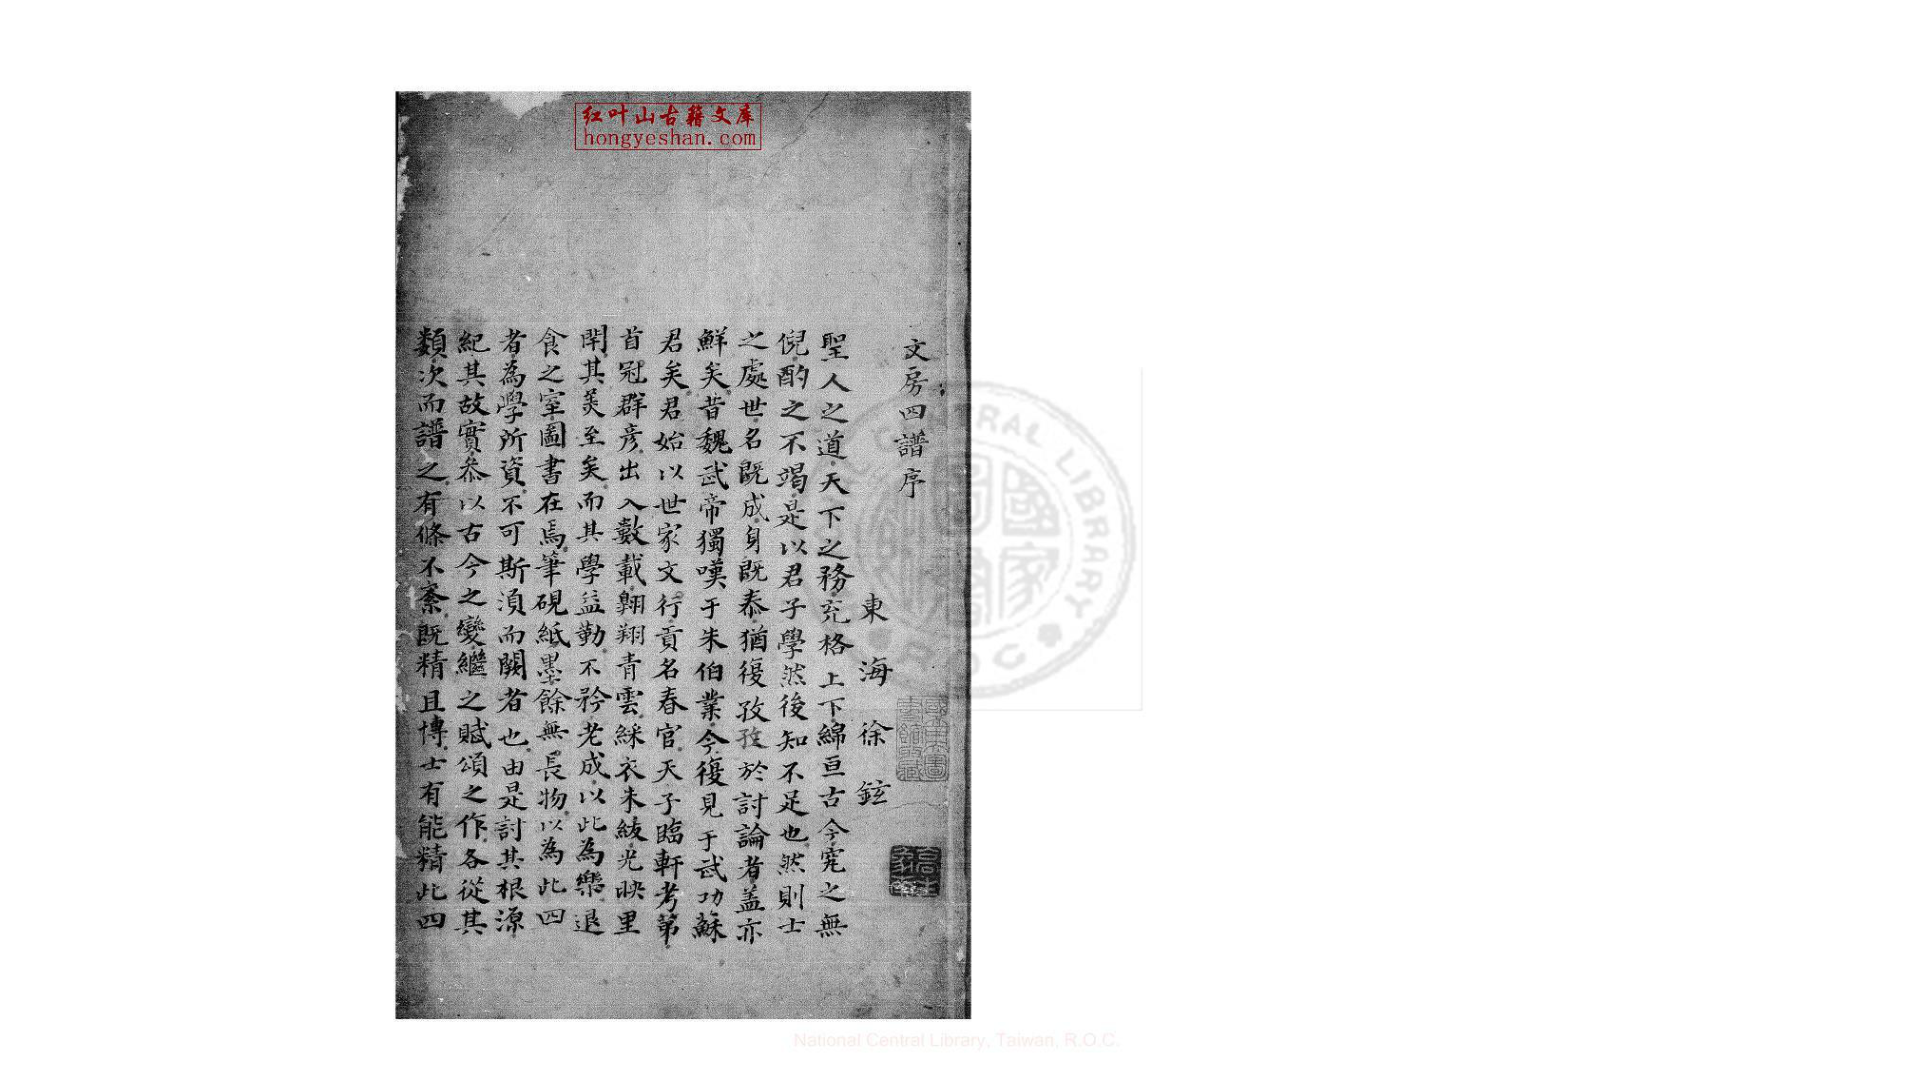 红叶山古籍文库
hongyeshan.com
文房四譜序
東海徐鉉
聖人之道天下之務充格上下綿亘古今究之無
倪酌之不竭是以君子學然後知不足也然則士
之處世名既成身既泰猶復孜孜於討論者蓋亦
鮮矣昔魏武帝獨嘆于朱伯業今復見于武功蘇
君矣君始以世家文行貢名春官天子臨軒考第
首冠群彦出入數載翱翔青雲綵衣朱紱光映里
閈其美至矣而其學益勤不矜老成以此為樂退
食之室圖書在焉筆硯紙墨餘無長物以為此四
者為學所資不可斯湏而闕者也由是討其根源
紀其故實叅以古今之變繼之賦頌之作各從其
類次而譜之有條不紊既精且博士有能精此四
CENTRAL LIBRARY
R.O.C
國家圖書
National Central Library, Taiwan, R.O.C.